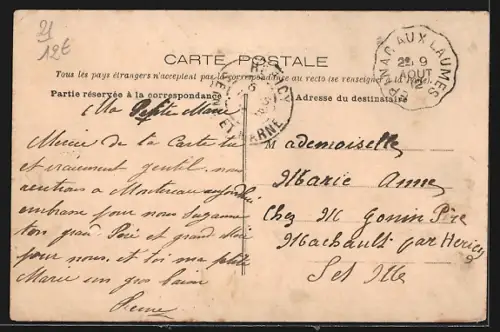 21
12€
CARTE POSTALE
Tous les pays étrangers n'acceptent pas la correspondance au recto (se renseigner à la Poste).
Partie réservée à la correspondance
Adresse du destinataire
AUX LAUMES
2E 9
AOUT
12
MARNE
Ma Petite Marie
Merci de la Carte tu
et vraiment gentil nous
à Montereau aujourd'hui
embrasse pour nous Suzanne
ton grand Père et grand Mère
pour nous. et toi ma petite
Marie un gros baiser
Reine
Mademoiselle
Marie Anne
Chez M Gonin Père
Machault par Hericy
Set Me